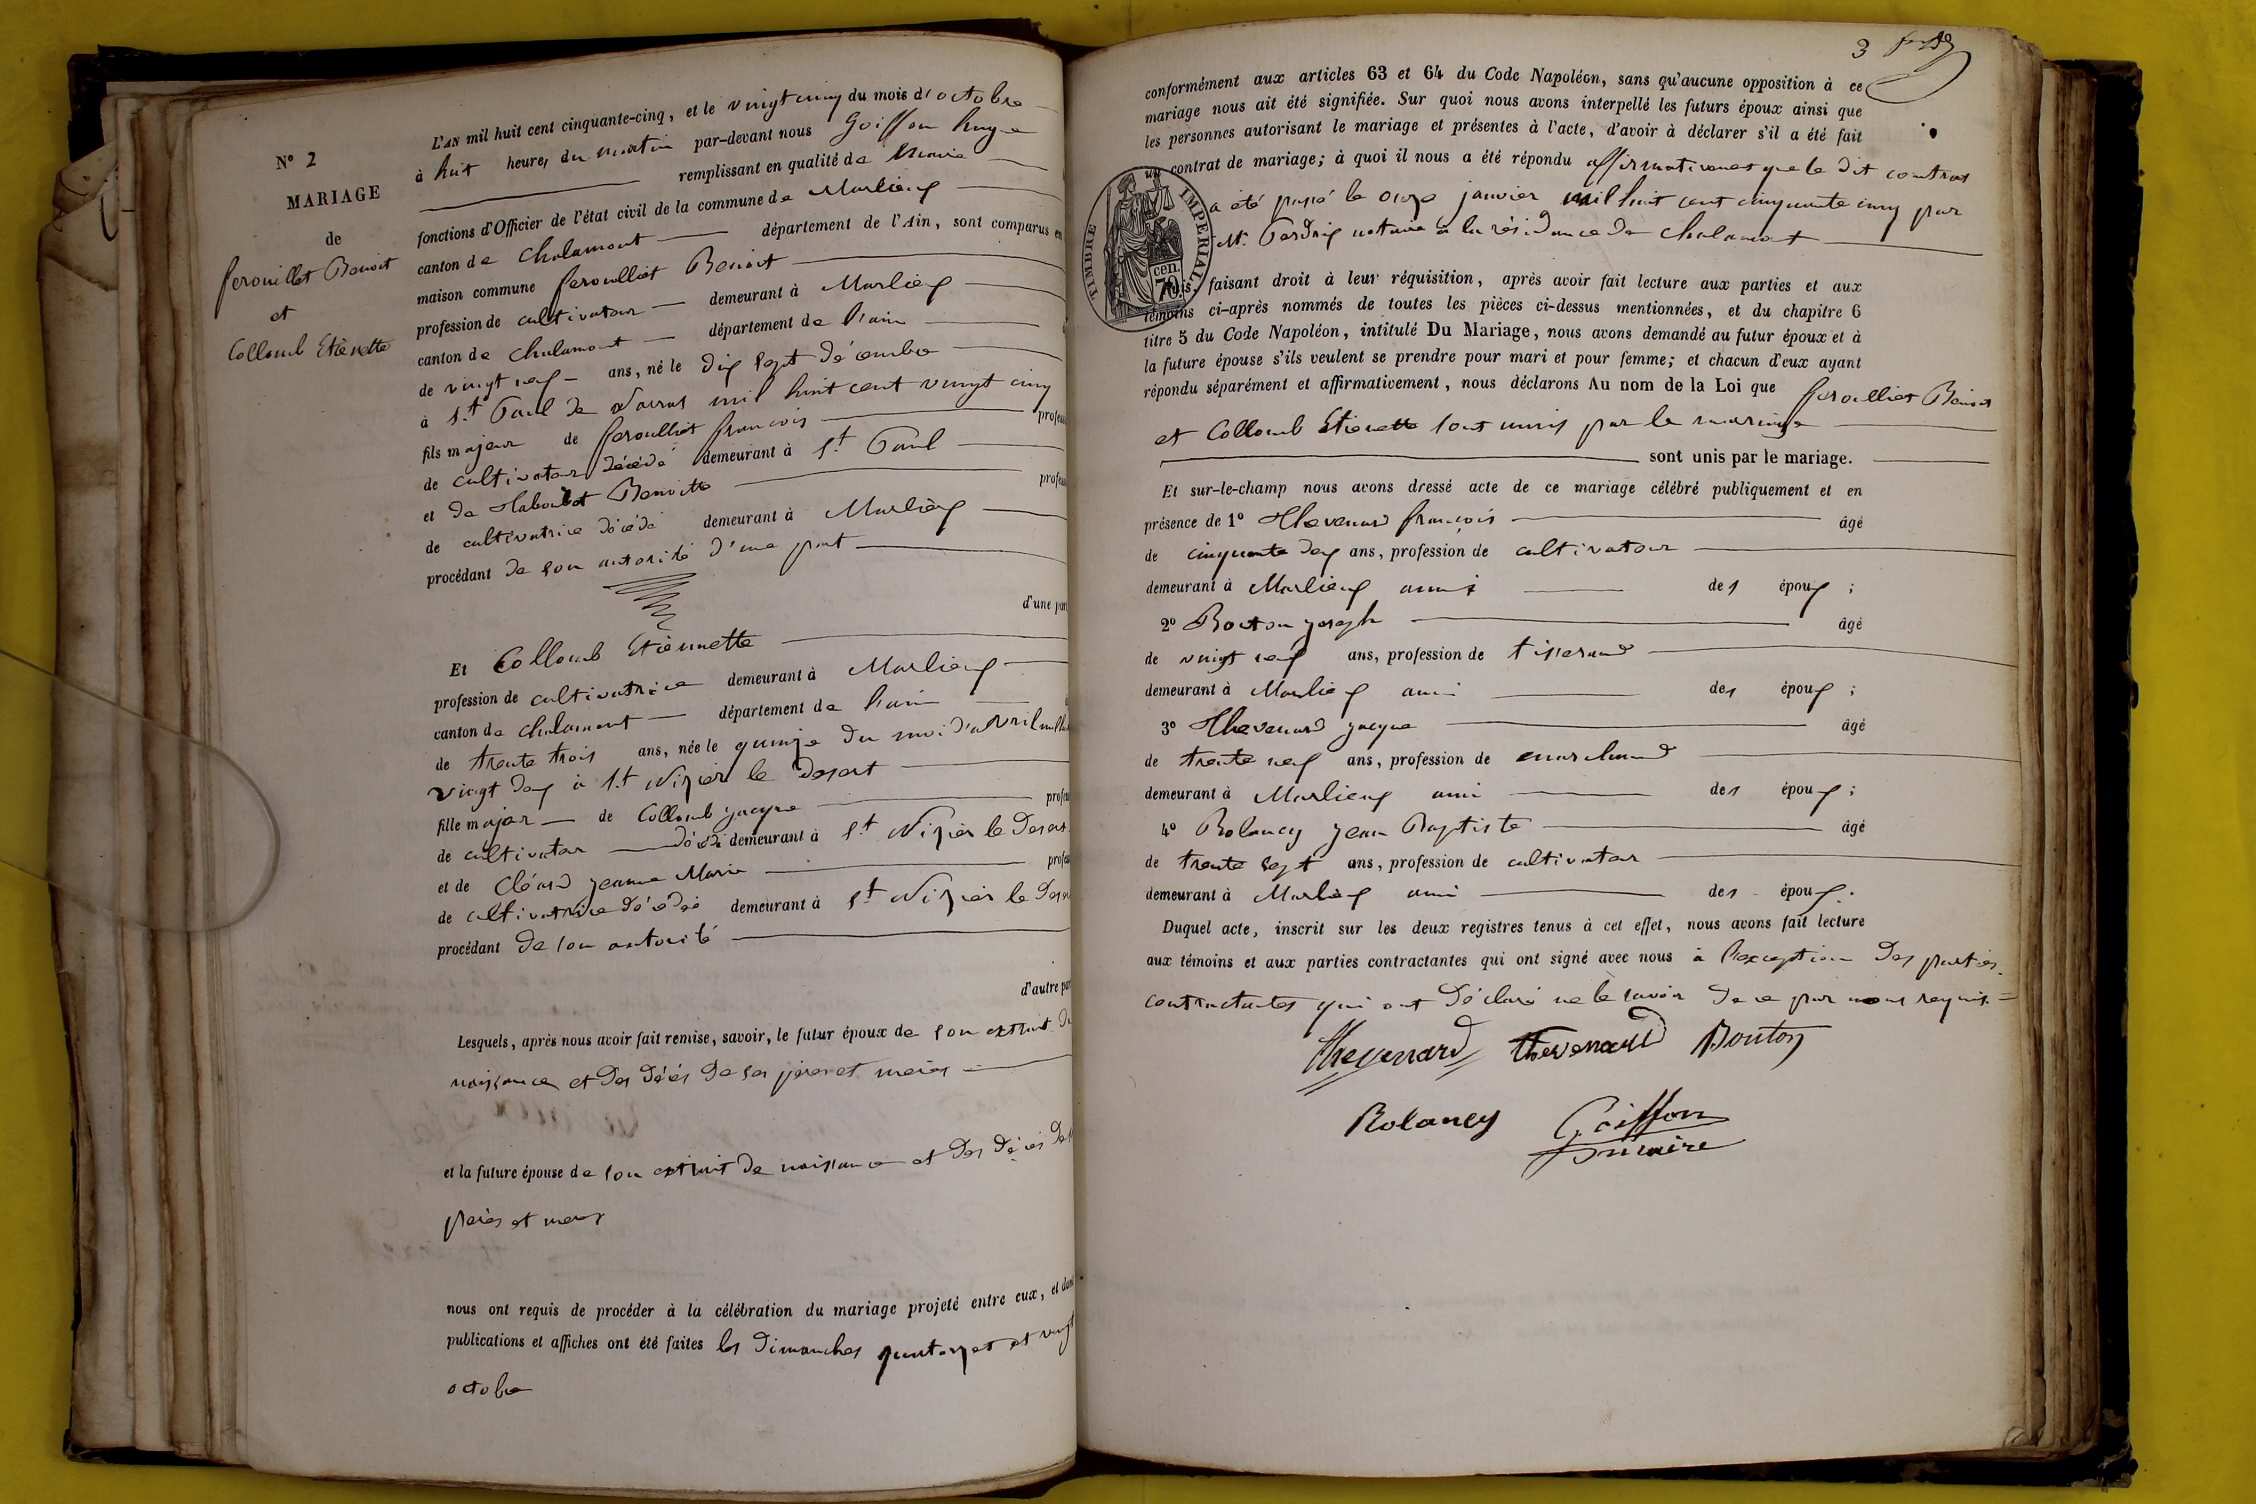 N° 2
MARIAGE
de
ferouillet Benoit
et
Collomb Etiènette
L'AN mil huit cent cinquante-cinq, et le vingt cinq du mois d'octobre
à huit heures du matin par-devant nous Goiffon hugue
remplissant en qualité de Maire
fonctions d'Officier de l'état civil de la commune de Marlieux
canton de Chalamont département de l'Ain, sont comparus en
maison commune feroulliet Benoit
profession de cultivateur demeurant à Marlieux
canton de chalamont département de l'ain
de vingt neuf ans, né le dix sept décembre
à St Paul de Varras mil huit cent vingt cinq
fils majeur de feroulliet francois profess
de cultivateur décédé demeurant à St Paul
et de Benoitte profess
de cultivatrice décédé demeurant à Marlieux
procédant de son autorité d'une part
d'une part
Et Collomb Etiennette
profession de cultivatrice demeurant à Marlieux
canton de chalamont département de l'ain
de trente trois ans, née le quinze du moi d'avril mil huit
vingt deux à St Nizier le Desert
fille majeur de Collomb Jacque profess
de cultivateur décédé demeurant à St Nizier le Desert
et de Cléard jeanne Marie profess
de cultivatrice décédée demeurant à St Nizier le Desert
procédant de son autorité
d'autre part
Lesquels, après nous avoir fait remise, savoir, le futur époux de son extrait de
naissance et des décés de ses pères et mères
et la future épouse de son extrait de naissance et des décés de
pères et mères
nous ont requis de procéder à la célébration du mariage projeté entre eux, et dont
publications et affiches ont été faites les dimanches quatorze et vingt
octobre
3
conformément aux articles 63 et 64 du Code Napoléon, sans qu'aucune opposition à ce
mariage nous ait été signifiée. Sur quoi nous avons interpellé les futurs époux ainsi que
les personnes autorisant le mariage et présentes à l'acte, d'avoir à déclarer s'il a été fait
contrat de mariage; à quoi il nous a été répondu affirmativement que le dit contrat
a été passé le onze janvier mil huit cent cinquante cinq par
Mr notaire à la résidence de chalamont
TIMBRE IMPERIAL
70 cen.
Nous, faisant droit à leur réquisition, après avoir fait lecture aux parties et aux
témoins ci-après nommés de toutes les pièces ci-dessus mentionnées, et du chapitre 6
titre 5 du Code Napoléon, intitulé Du Mariage, nous avons demandé au futur époux et à
la future épouse s'ils veulent se prendre pour mari et pour femme; et chacun d'eux ayant
répondu séparément et affirmativement, nous déclarons Au nom de la Loi que feroulliet Benoit
et Collomb Etienette sont unis par le mariage
sont unis par le mariage.
Et sur-le-champ nous avons dressé acte de ce mariage célébré publiquement et en
présence de 1° Thevenard françois âgé
de cinquante deux ans, profession de cultivateur
demeurant à Marlieux ami des époux ;
2° Bouton joseph âgé
de vingt neuf ans, profession de tisserand
demeurant à Marlieux ami des époux ;
3° Thevenard jacque âgé
de trente neuf ans, profession de marchand
demeurant à Marlieux ami des époux ;
4° Rolancy jean Baptiste âgé
de trente sept ans, profession de cultivateur
demeurant à Marlieux ami des époux.
Duquel acte, inscrit sur les deux registres tenus à cet effet, nous avons fait lecture
aux témoins et aux parties contractantes qui ont signé avec nous à l'exception des parties
contractantes qui ont déclaré ne le savoir de ce par nous requis
Thevenard Thevenard Bouton
Rolancy Goiffon
maire